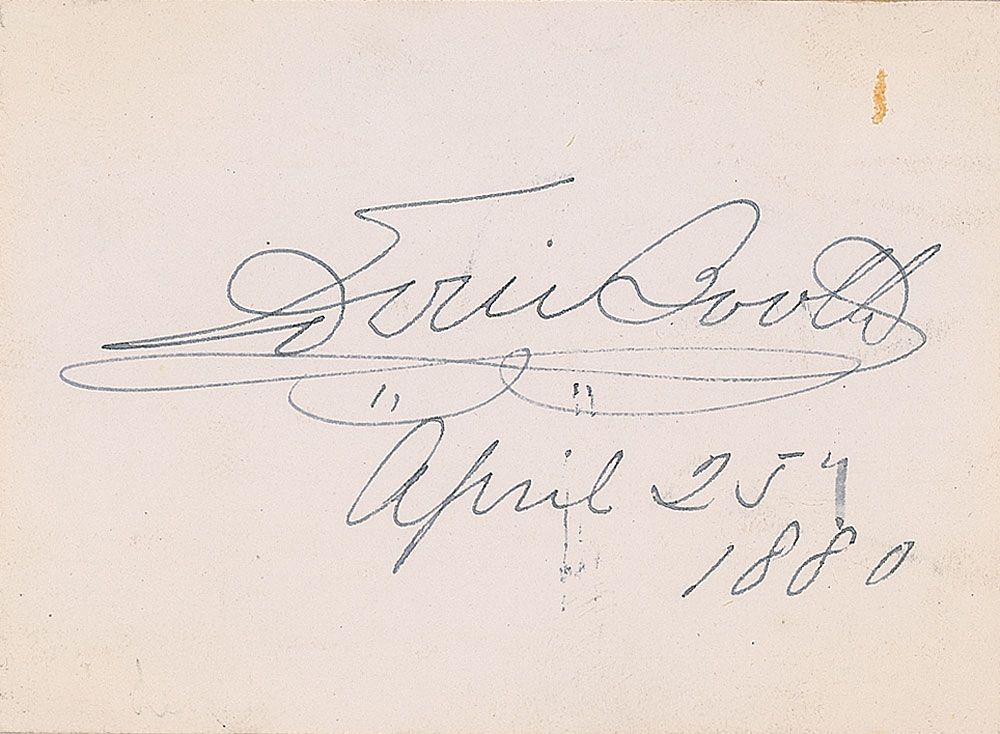 Edwin Booth
April 25"
1880